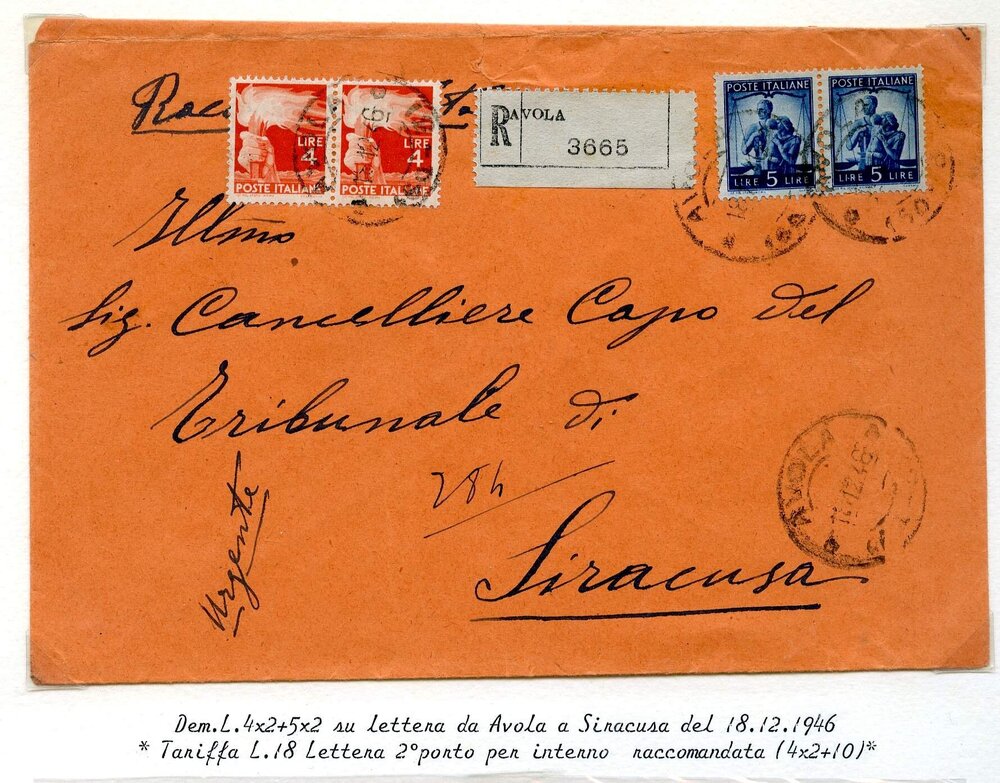 LIRE
4
POSTE ITALIANE
LIRE
4
POSTE ITALIANE
R AVOLA
3665
POSTE ITALIANE
LIRE 5 LIRE
POSTE ITALIANE
LIRE 5 LIRE
Illmo
Sig. Cancelliere Capo del
Tribunale di
284
Siracusa
Urgente
AVOLA
Dem.L.4x2+5x2 su lettera da Avola a Siracusa del 18.12.1946
* Tariffa L.18 Lettera 2°porto per interno raccomandata (4x2+10)*